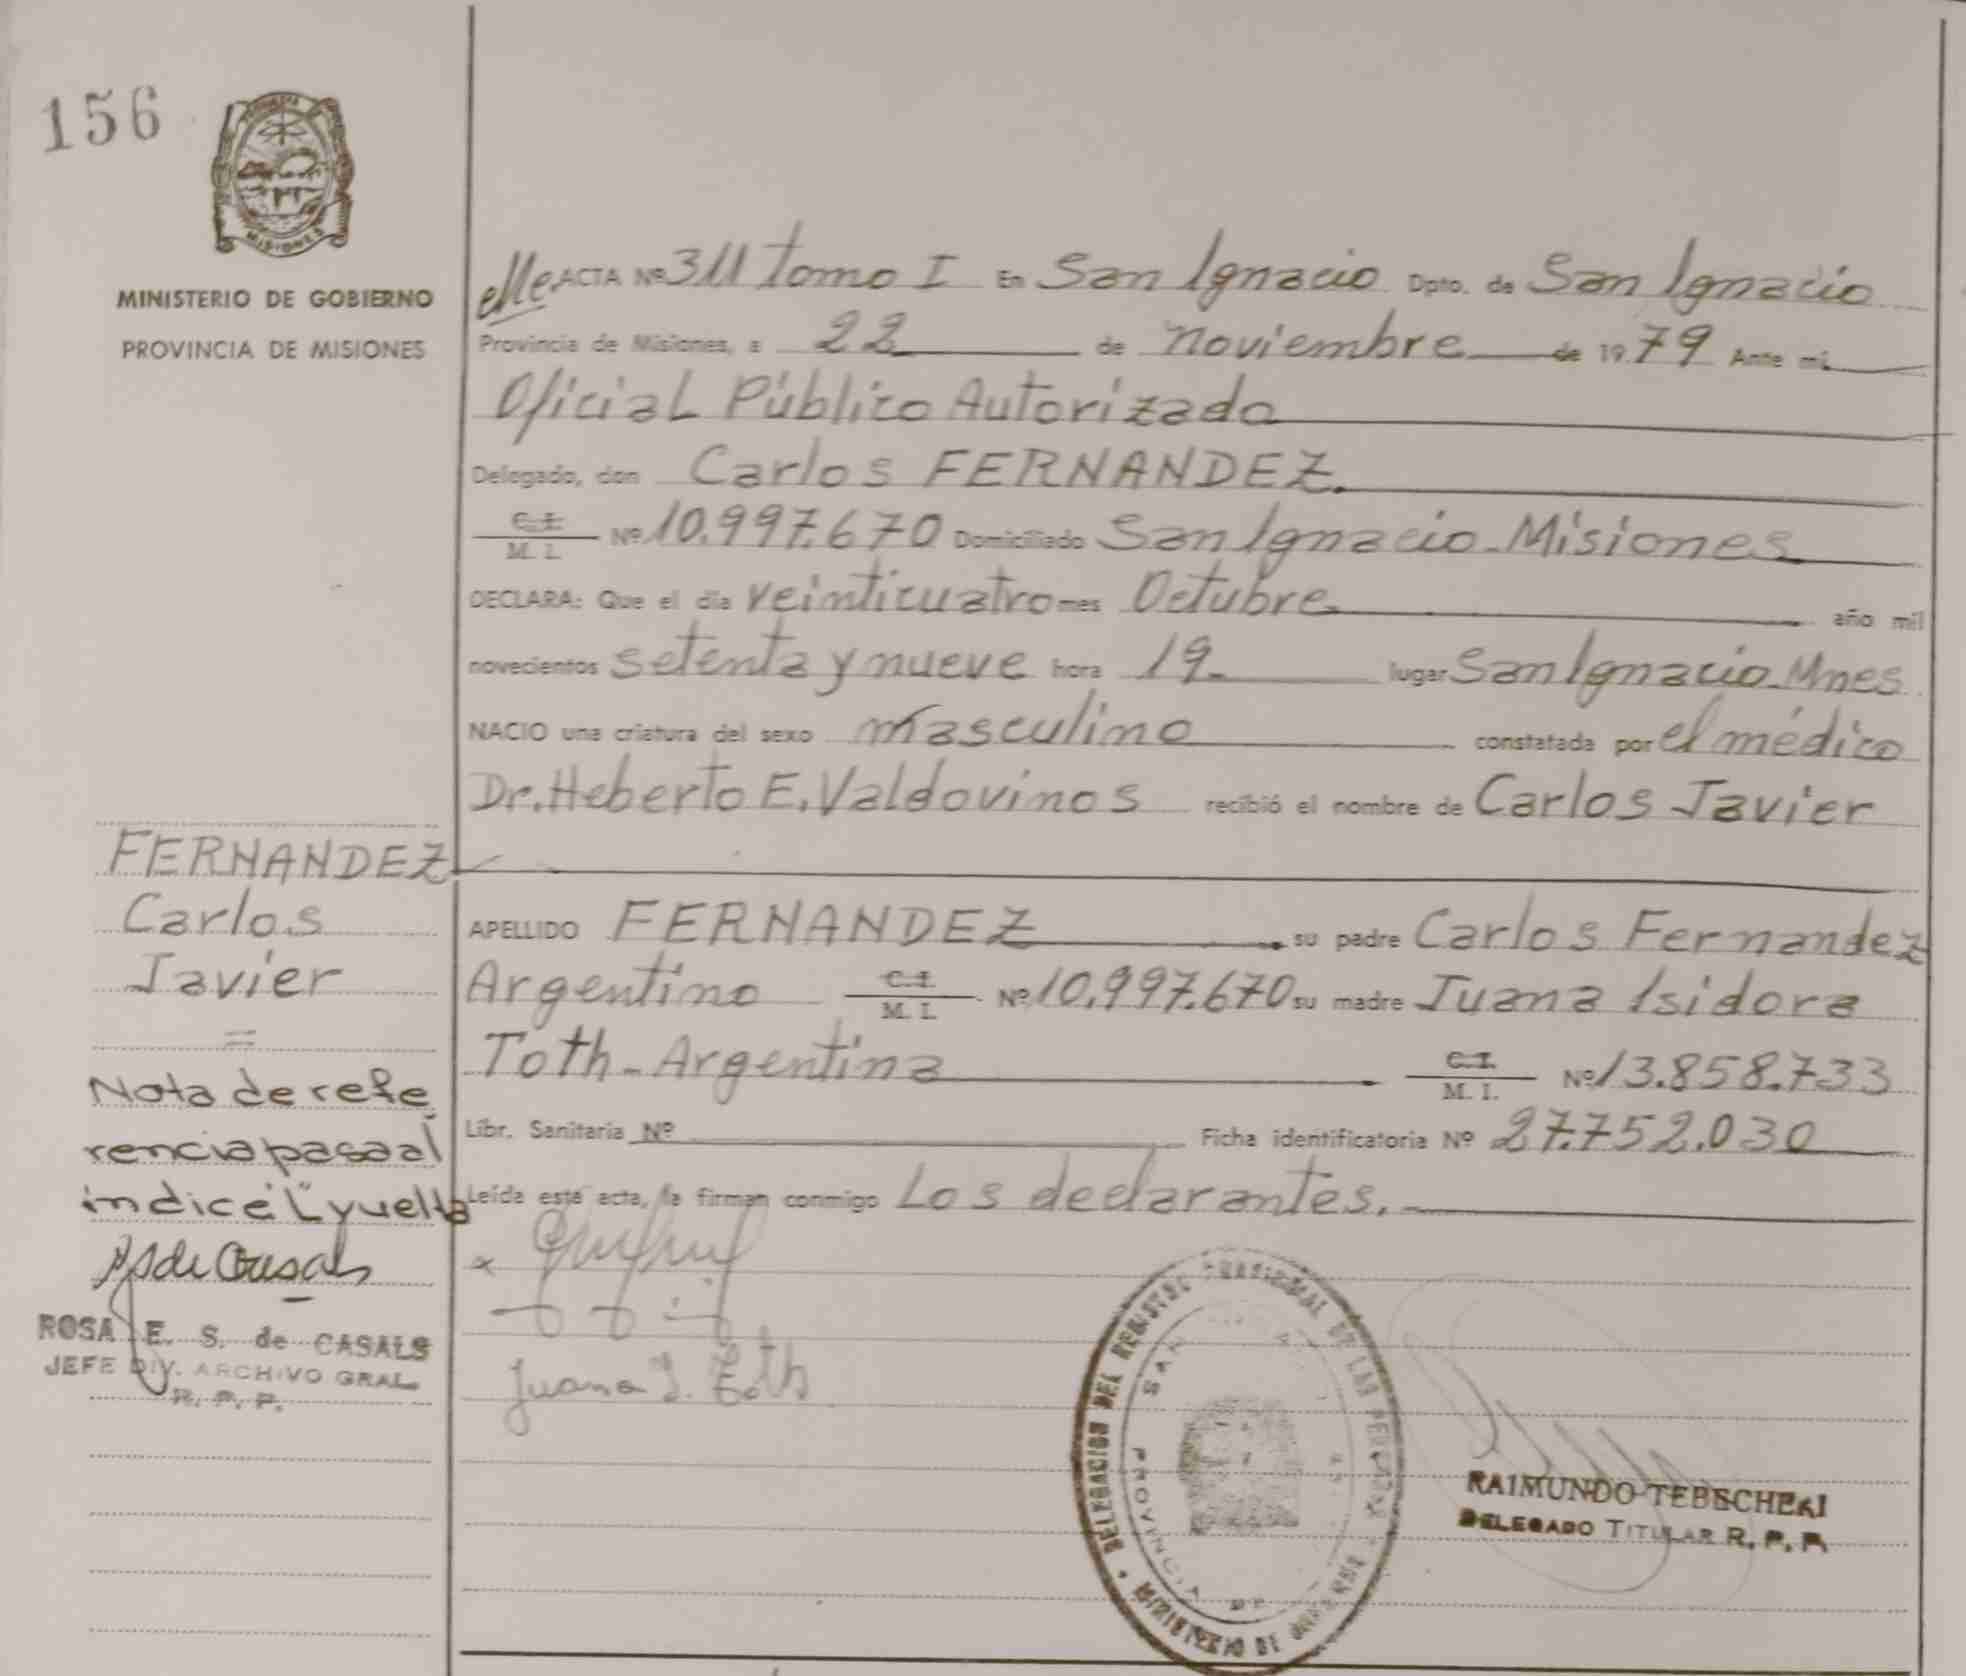 156
MISIONES
MINISTERIO DE GOBIERNO
PROVINCIA DE MISIONES
ACTA Nº 311 Tomo I En San Ignacio Dpto. de San Ignacio
Provincia de Misiones, a 22 de noviembre de 1979 Ante mí
Oficial Público Autorizado
Delegado, don Carlos FERNANDEZ.
C.I. M. I. Nº 10.997.670 Domiciliado San Ignacio - Misiones
DECLARA: Que el día veinticuatro mes Octubre año mil
novecientos setenta y nueve hora 19. lugar San Ignacio - Mnes.
NACIO una criatura del sexo masculino constatada por el médico
Dr. Heberto E. Valdovinos recibió el nombre de Carlos Javier
FERNANDEZ
Carlos
Javier
=
Nota de refe
rencia pasa al
indice "L" y vuelta
ROSA E. S. de CASALS
JEFE DIV. ARCHIVO GRAL.
R. P. P.
APELLIDO FERNANDEZ su padre Carlos Fernandez
Argentino C.I. M. I. Nº 10.997.670 su madre Juana Isidora
Toth - Argentina C.I. M. I. Nº 13.858.733
Libr. Sanitaria Nº Ficha identificatoria Nº 27.752.030
Leída esta acta, la firman conmigo Los declarantes.
Juana I. Toth
DELEGACION DEL REGISTRO PROVINCIAL DE LAS PERSONAS
MINISTERIO DE GOBIERNO
SAN
PROVINCIA DE
RAIMUNDO TEBSCHERI
DELEGADO TITULAR R. P. P.